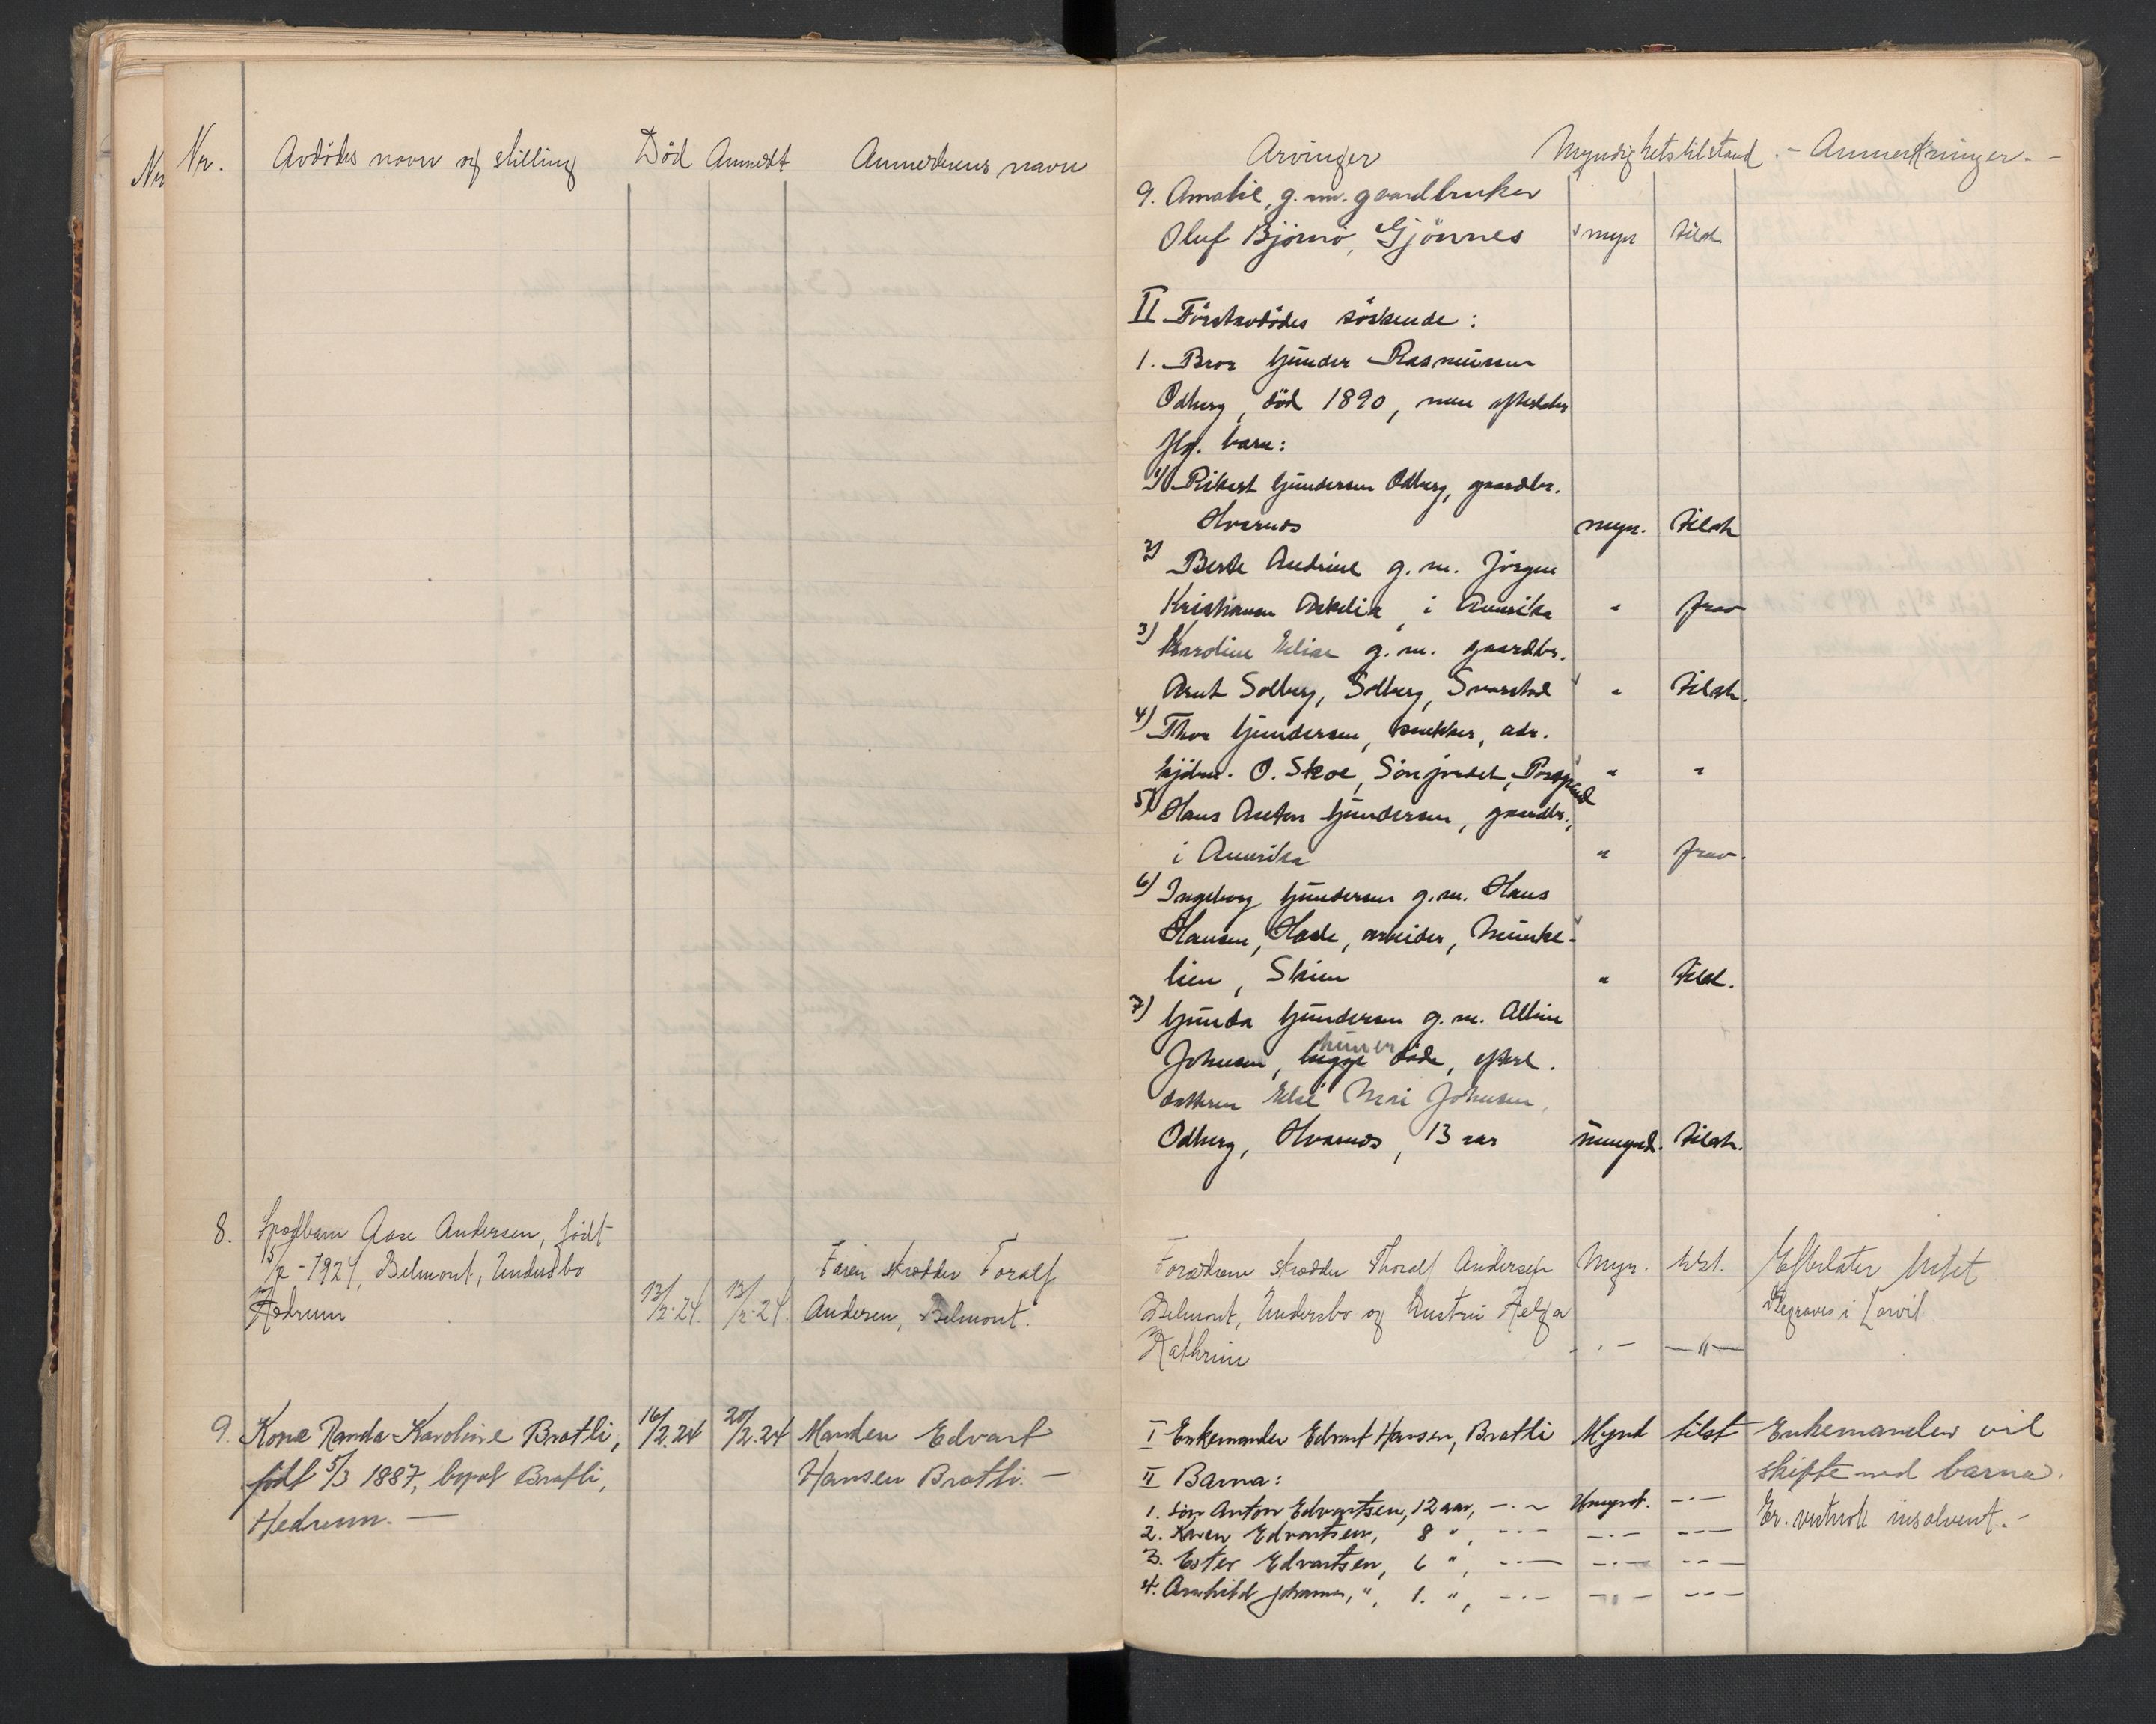 Nr.
Nr. Avdødes navn og stilling Død Anmeldt Anmelderens navn
8. Spædbarn Aase Andersen, født
15/2-1924, Belmont, Undersbo
Hedrum 13/2-24. 13/2-24. Faren skrædder Toralf
Andersen, Belmont.
9. Kone Randa Karoline Bratli, 16/2.24 20/2.24 Manden Edvart
født 5/3 1887, bopæl Bratli, Hansen Bratli. —
Hedrum. —
Arvinger Myndighetstilstand. - Anmerkninger. -
9. Amalie, g.m. gaardbruker
Oluf Bjørnø, Gjønnes myn tilst
II Førstavdødes søskende:
1. Bror Gunder Rasmussen
Odberg, død 1890, men efterlater
flg. barn:
1) Rikart Gundersen Odberg, gaardbr.
Hvarnes myn. tilst
2) Berte Andrine g.m. Jørgen
Kristiansen Askelia, i Amerika " frav
3) Karoline Elise g.m. gaardbr.
Arnt Solberg, Solberg, Svarstad " tilst.
4) Thor Gundersen, snekker, adr.
kjøbm. O. Skoe, Sönjordet, Porsgrund " "
5) Hans Anton Gundersen, gaardbr.,
i Amerika " frav.
6) Ingeborg Gundersen g.m. Hans
Hansen, Hasle, arbeider, Munke-
lien, Skien " tilst.
7) Gunda Gundersen g.m. Albin
Johnsen, begge hun er døde, efterl.
datteren Else Mari Johnsen,
Odberg, Hvarnes, 13 aar umynd. tilst.
Forældrene skrædder Thoralf Andersen Myn. tilst. Efterlater intet
Belmont, Undersbo og hustru Helga Begraves i Larvik
Kathrine - . - —"—
I Enkemanden Edvart Hansen, Bratli Mynd tilst Enkemanden vil
II Barna: skifte med barna.
1. søn Anton Edvartsen, 12 aar, -.- Umynd. -.- Er. insolvent. -
2. Karen Edvartsen, 8 ", -.- -.- ---
3. Ester Edvartsen, 6 ", -.- -.- ---
4. Arnhild Johanne, ", 1. ", -.- -"- ---